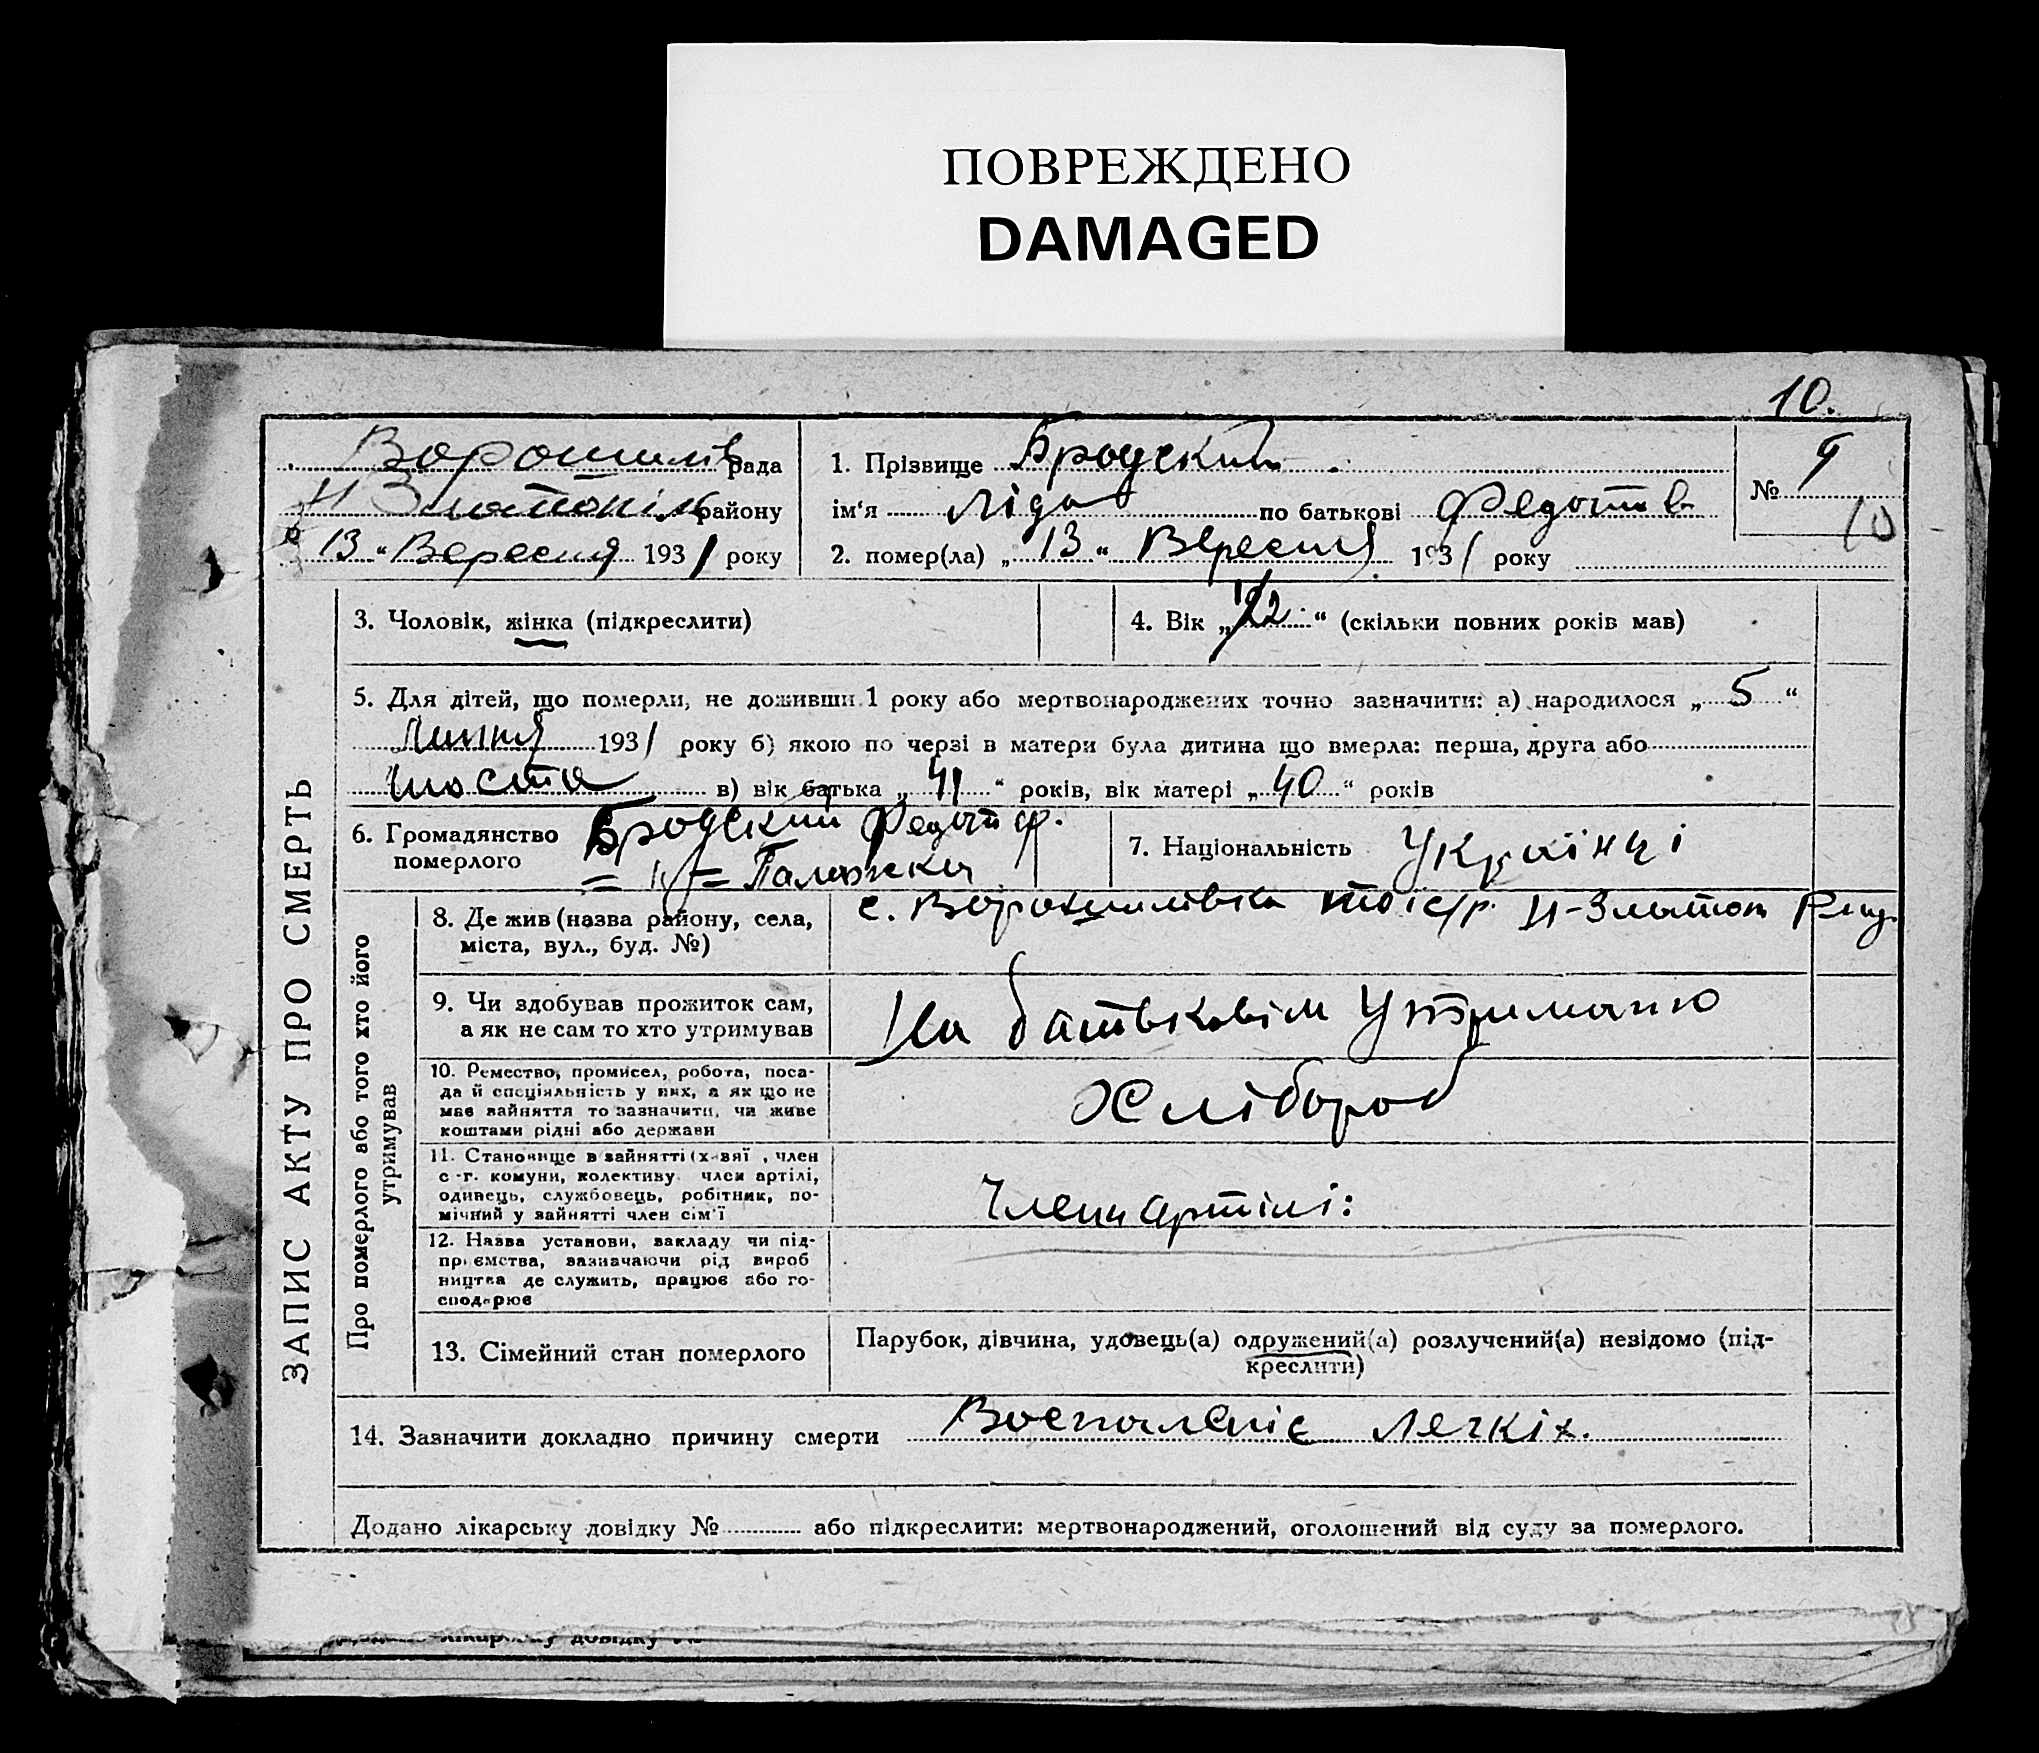 ПОВРЕЖДЕНО
DAMAGED
10.
Ворошилів рада
Н Златопіль району
„13“ Вересня 1931 року
1. Прізвище Бродский
ім‘я Ліда по батькові Федотів
2. помер(ла) „13“ Вересня 1931 року
№ 9
10
ЗАПИС АКТУ ПРО СМЕРТЬ
3. Чоловік, жінка (підкреслити)
4. Вік „“ (скільки повних років мав)
5. Для дітей, що померли, не доживши 1 року або мертвонароджених точно зазначити: а) народилося „5“
Липня 1931 року б) якою по черзі в матери була дитина що вмерла: перша, друга або
шоста в) вік батька „41“ років, вік матері „40“ років
6. Громадянство
померлого
Бродский Федот Ф.
= „ = Палажка
7. Національність Українці
Про померлого або того хто його
утримував
8. Де жив (назва району, села,
міста, вул., буд. №)
с. Ворошилівка тоіс/р. Н-Златоп
9. Чи здобував прожиток сам,
а як не сам то хто утримував
На батьковім Утриманю
10. Ремество, промисел, робота, поса-
да й спеціяльність у них, а як що не
має зайняття то зазначити, чи живе
коштами рідні або держави
Хлібороб
11. Становище в зайнятті (х-вяї , член
с-г. комуни, колективу, член артілі,
одинець, службовець, робітник, по-
мічний у зайнятті член сім‘ї
Член артілі:
12. Назва установи, закладу чи під-
приємства, зазначаючи рід вироб
ництва де служить, працює або го-
сподарює
13. Сімейний стан померлого
Парубок, дівчина, удовець(а) одружений(а) розлучений(а) невідомо (під-
креслити)
14. Зазначити докладно причину смерти Воспаленіє легкіх.
Додано лікарську довідку № або підкреслити: мертвонароджений, оголошений від суду за померлого.